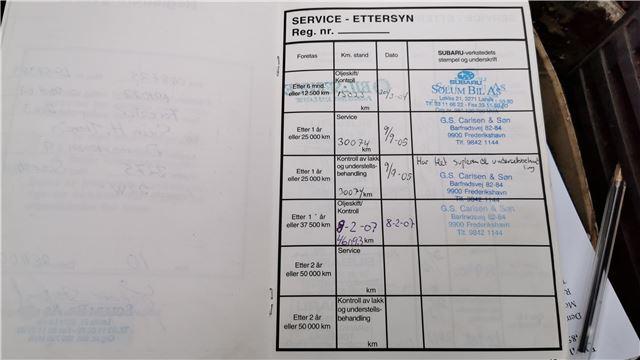 SERVICE - ETTERSYN
Reg. nr.
Foretas
Km. stand
Dato
SUBARU-verkstedets
stempel og underskrift
Etter 6 mnd.
eller 12 500 km
Oljeskift/
Kontroll
km
SUBARU
SOLUM BIL A.S
Etter 1 år
eller 25 000 km
Service
30074 km
9/9-05
G.S. Carlsen & Søn
Barfredsvej 82-84
9900 Frederikshavn
Tlf. 9842 1144
Etter 1 år
eller 25 000 km
Kontroll av lakk
og understells-
behandling
30074 km
9/9-05
Har fået
G.S. Carlsen & Søn
Barfredsvej 82-84
9900 Frederikshavn
Tlf. 9842 1144
Etter 1 ½ år
eller 37 500 km
Oljeskift/
Kontroll
8-2-07
46193 km
8-2-07
G.S. Carlsen & Søn
Barfredsvej 82-84
9900 Frederikshavn
Tlf. 9842 1144
Etter 2 år
eller 50 000 km
Service
km
Etter 2 år
eller 50 000 km
Kontroll av lakk
og understells-
behandling
km